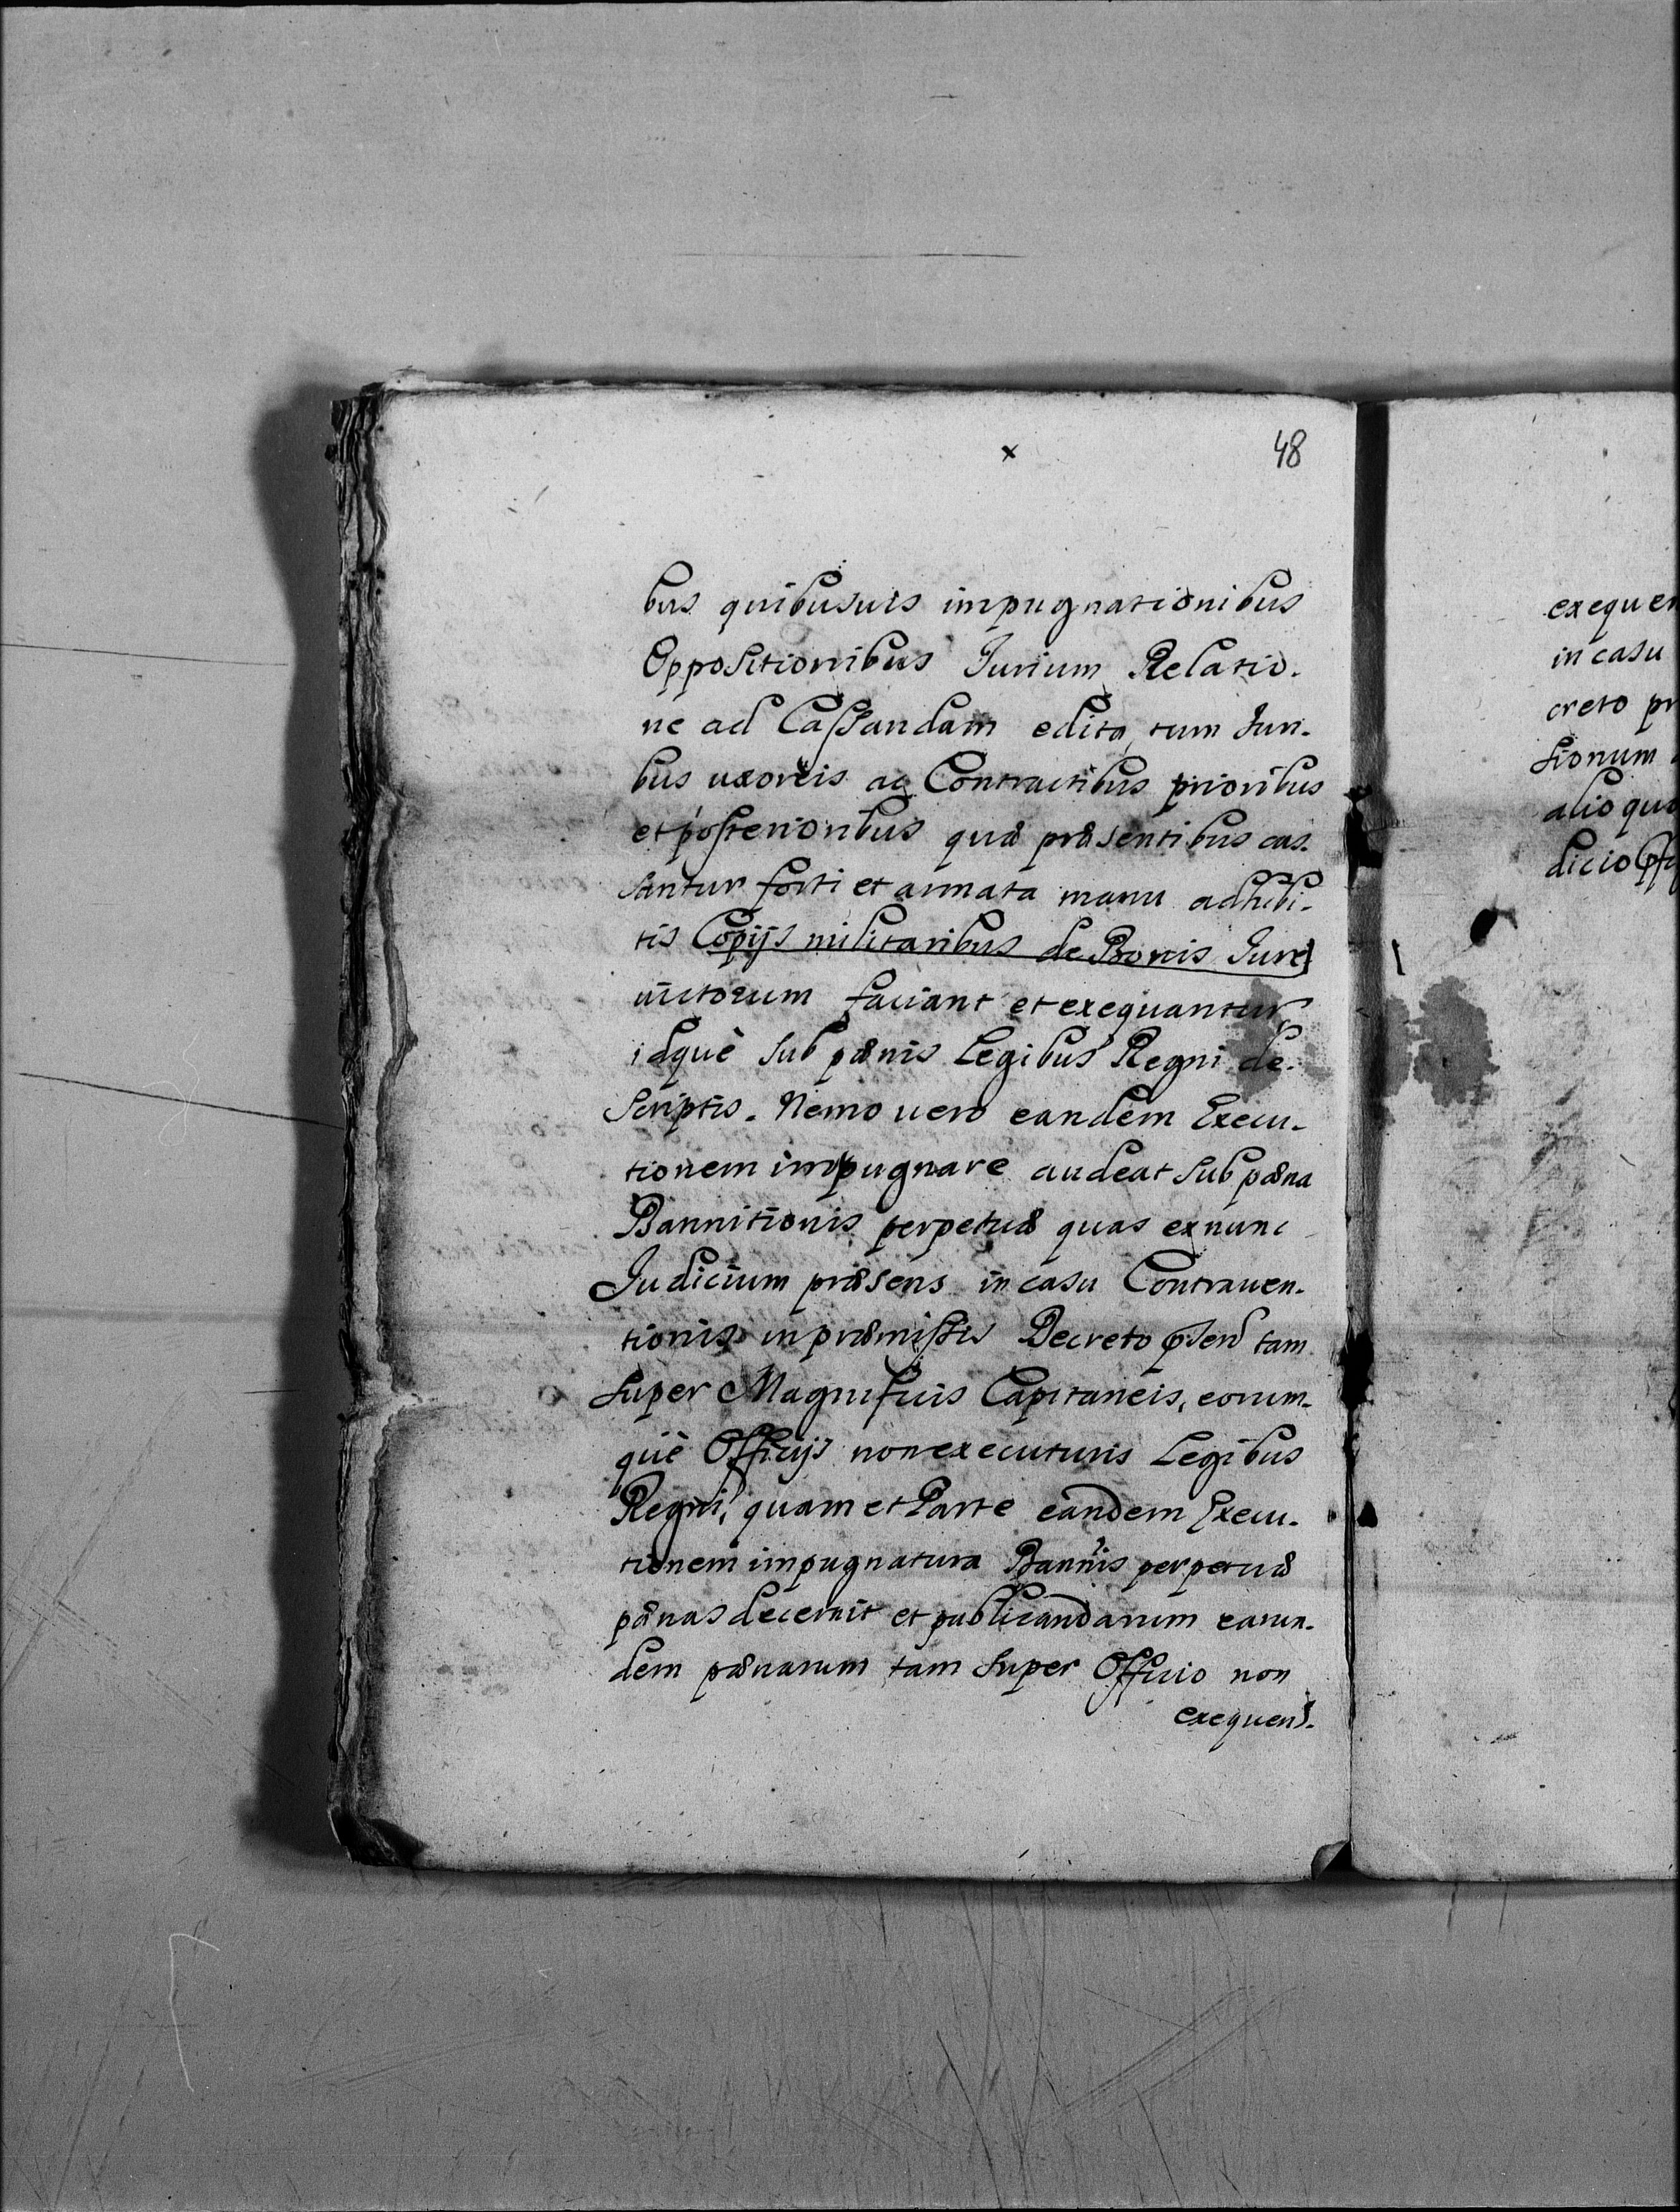 x 48
bus quibusuis impugnationibus
Oppositionibus Jurium Relatio-
ne ad Cassandam edita, tum Juri-
bus uxoreis ac Contractibus prioribus
et posterioribus quæ præsentibus cas-
santur forti et armata manu adhibi-
tis Copijs militaribus de Bonis Jure
uictorum faciant et exequantur
idquè sub pænis Legibus Regni de-
scriptis. Nemo uero eandem Execu-
tionem impugnare audeat sub pæna
Bannitionis perpetuæ quas exnunc
Judicium præsens in casu Contrauen-
tionis in præmissis Decreto tam
super Magnificis Capitaneis, eorum-
què Officijs non executuris Legibus
Regni, quam et Parte eandem Execu-
tionem impugnatura Bannis perpetuæ
pænas decernit et publicandarum earun-
dem pænarum tam super Officio non
exequen.
exequen
in casu
creto pr
sionum
alio qu
dicio